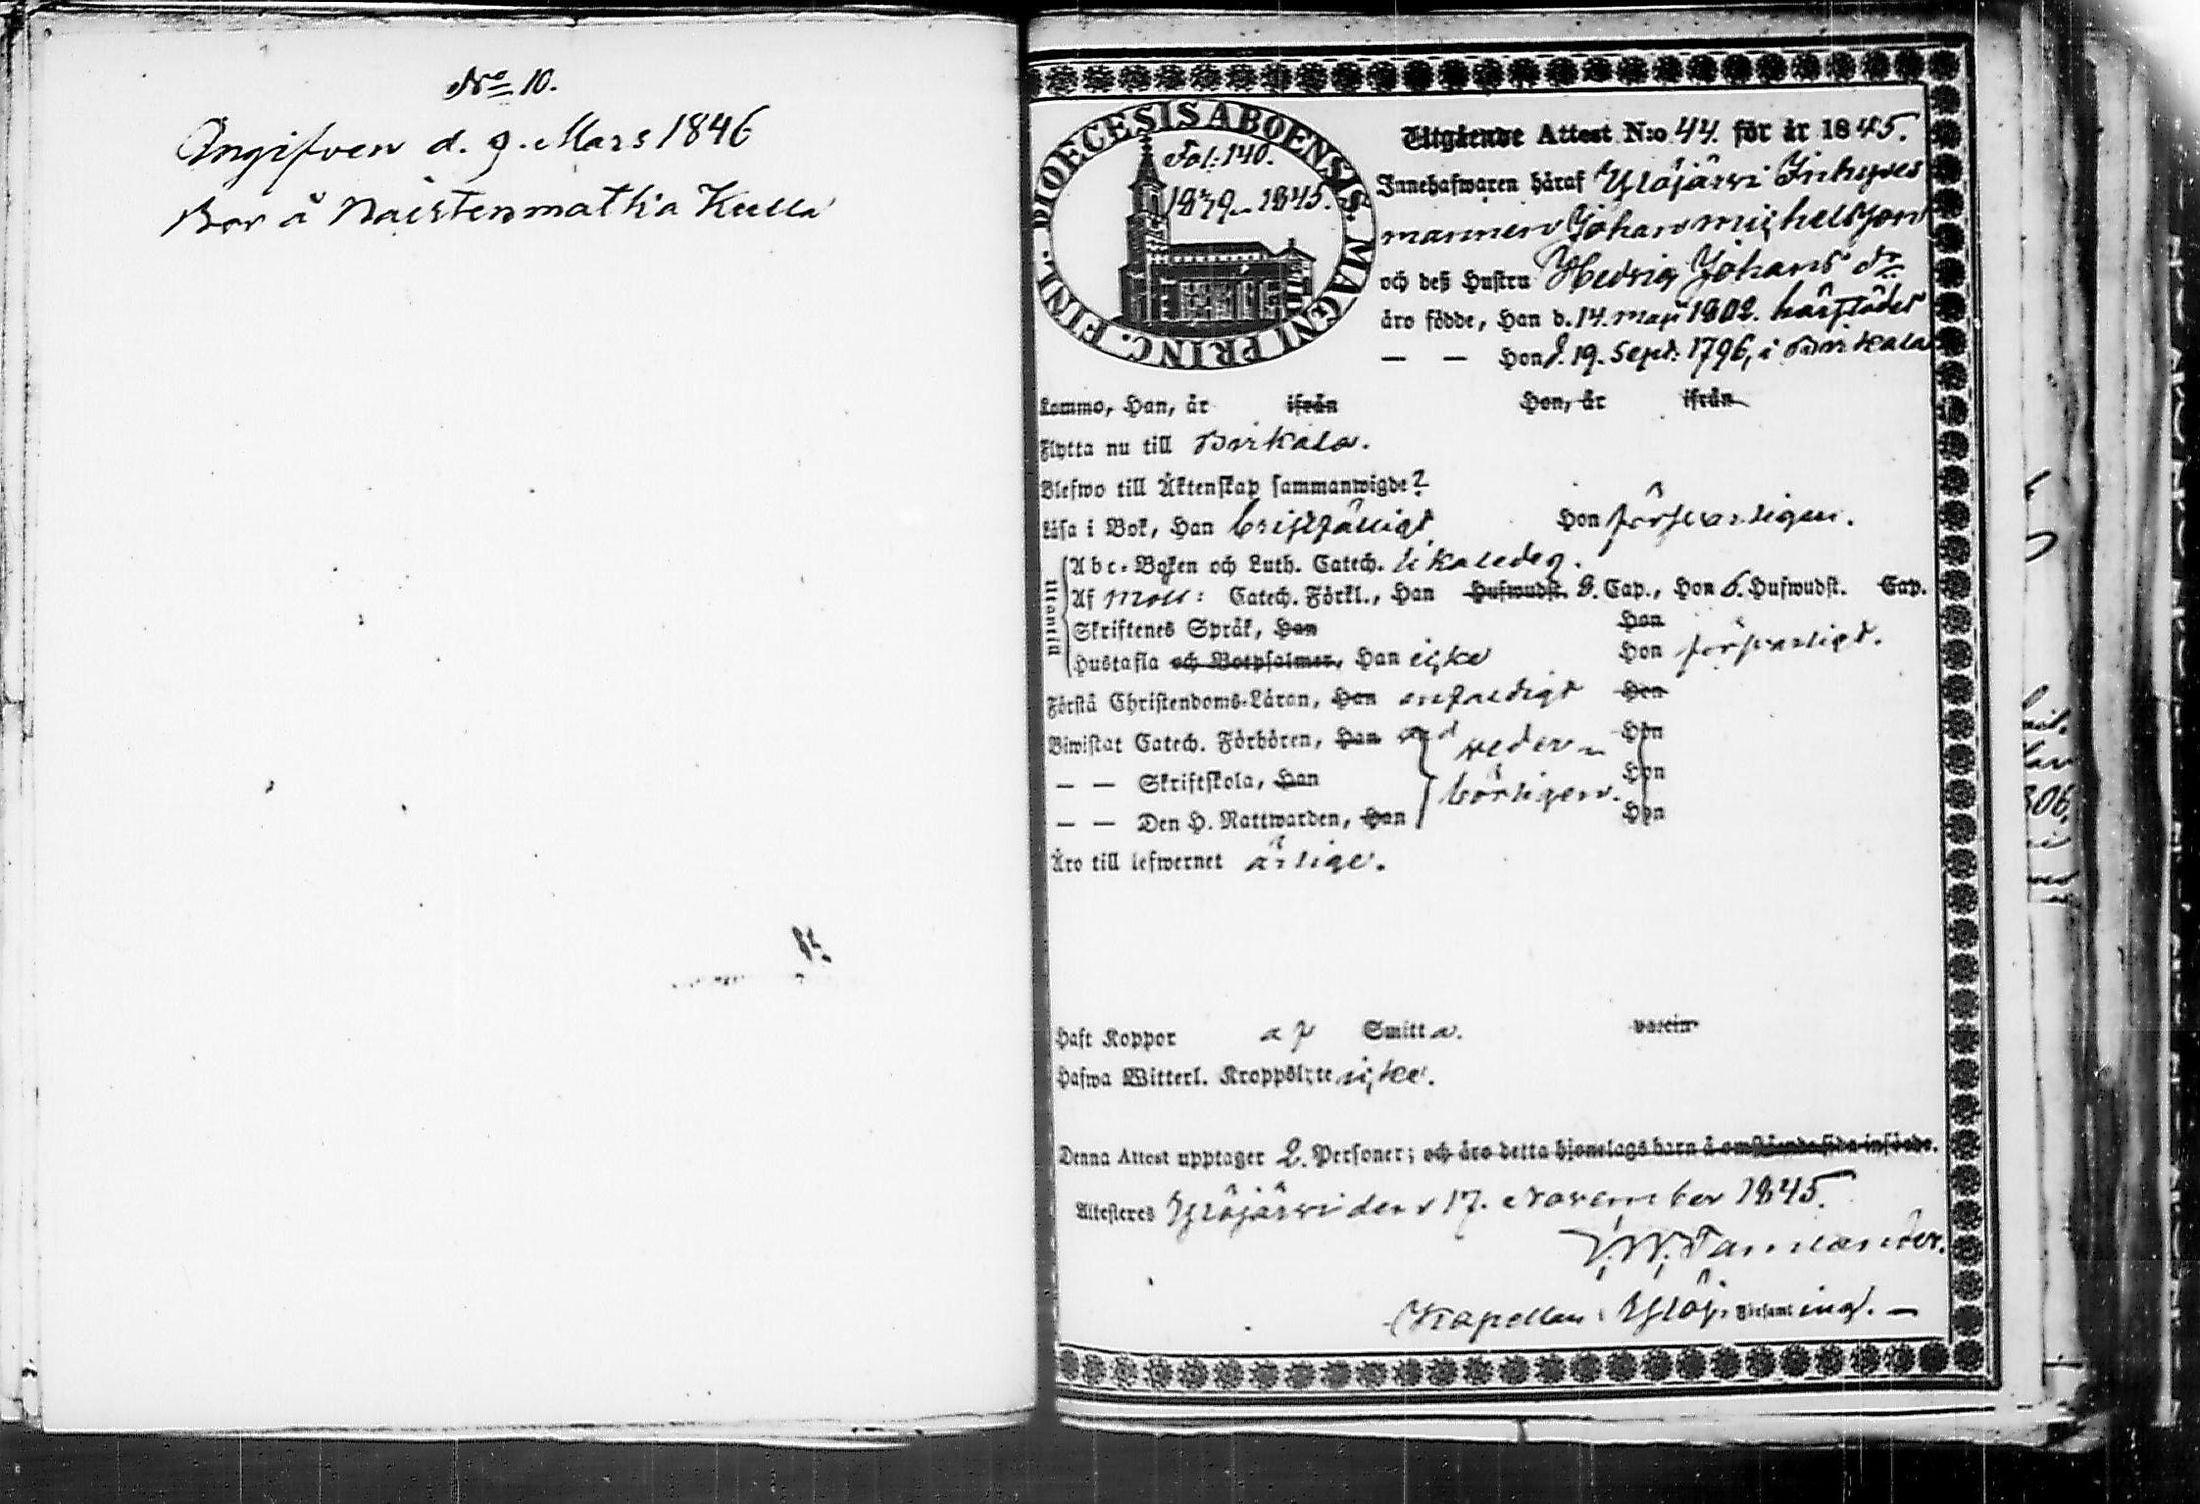 No 10.
Angifven d. 9. Mars 1846
Bor å Naistenmatka Kulla
DIOECESIS ABOENSIS. MAGNI PRINC. FINL.
Fol: 140.
1839-1845.
Utgående Attest N:o 44. för år 1845.
Innehafwaren häraf Ylöjärvi Inhyses
mannen Johan Michelsson
och deß Hustru Hedvig Johans dr
äro födde, Han d. 14. Maji 1802. härstädes
— — Hon d. 19. Sept. 1796, i Birkala
Kommo, Han, år ifrån Hon, år ifrån
Flytta nu till Birkala.
Blefwo till Äktenskap sammanwigde?
Läsa i Bok, Han bristfälligt Hon försvarligen.
Utantill
Abc-Boken och Luth. Catech. likaledes.
Af Möll: Catech. Förkl., Han Hufwudst. 8. Cap., Hon 6. Hufwudst. Cap.
Skriftenes Språk, Han Hon
Hustafla och Botpsalmer, Han icke Hon försvarligt.
Förstå Christendoms-Läran, Han enfaldigt Hon
Biwistat Catech. Förhören, Han veder- Hon
— — Skriftskola, Han börligen. Hon
— — Den H. Nattwarden, Han Hon
Äro till lefwernet ärlige.
Haft Koppor af Smitta. vaccin
Hafwa Witterl. Kroppslyte icke.
Denna Attest upptager 2. Personer; och äro detta hjonelags barn å omstående sida införde.
Attesteres Ylöjärvi den 17. November 1845.
Kapellan i Ylöj. Församling. —